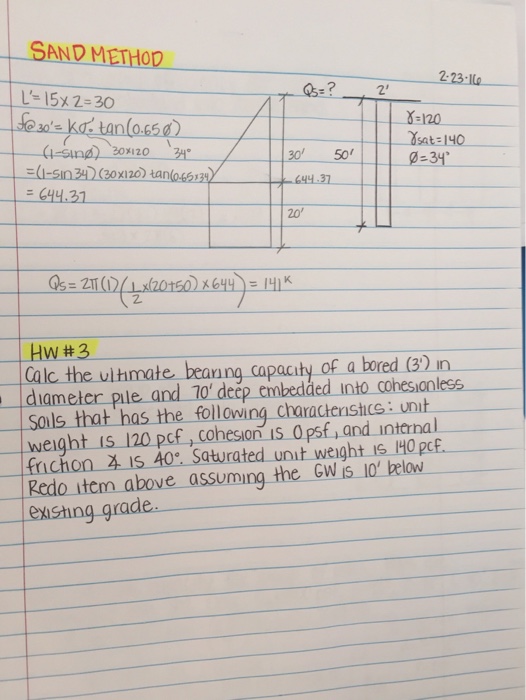 SAND METHOD
2-23-16
L'=15x2=30
Qs=?
2'
f@30'=Kσ'o tan(0.65φ)
γ=120
γsat=140
(1-sinφ) 30x120 34°
30'
50'
φ=34°
=(1-sin34)(30x120)tan(0.65x34)
644.37
= 644.37
20'
Qs= 2π(1)(1/2x(20+50)x644)= 141ᴷ
HW #3
Calc the ultimate bearing capacity of a bored (3') in
diameter pile and 70' deep embedded into cohesionless
soils that has the following characteristics: unit
weight is 120 pcf, cohesion is 0 psf, and internal
friction ∡ is 40°. Saturated unit weight is 140 pcf.
Redo item above assuming the GW is 10' below
existing grade.